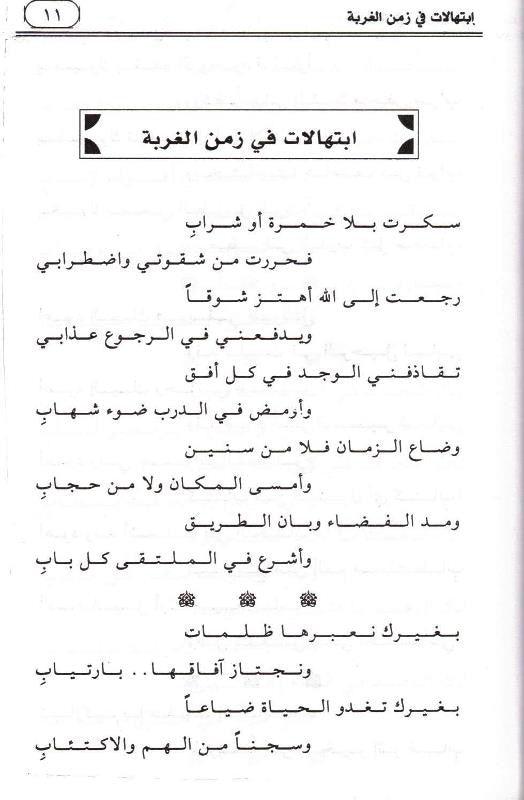 ابتهالات في زمن الغربة
١١
ابتهالات في زمن الغربة
سكرت بلا خمرة أو شرابِ
فحررت من شقوتي واضطرابي
رجعت إلى الله أهتز شوقاً
ويدفعني في الرجوع عذابي
تقاذفني الوجد في كل أفق
وأرمض في الدرب ضوء شهابِ
وضاع الزمان فلا من سنين
وأمسى المكان ولا من حجابِ
ومد الفضاء وبان الطريق
وأشرع في الملتقى كل بابِ
بغيرك نعبرها ظلمات
ونجتاز آفاقها.. بارتيابِ
بغيرك تغدو الحياة ضياعاً
وسجناً من الهم والاكتئابِ